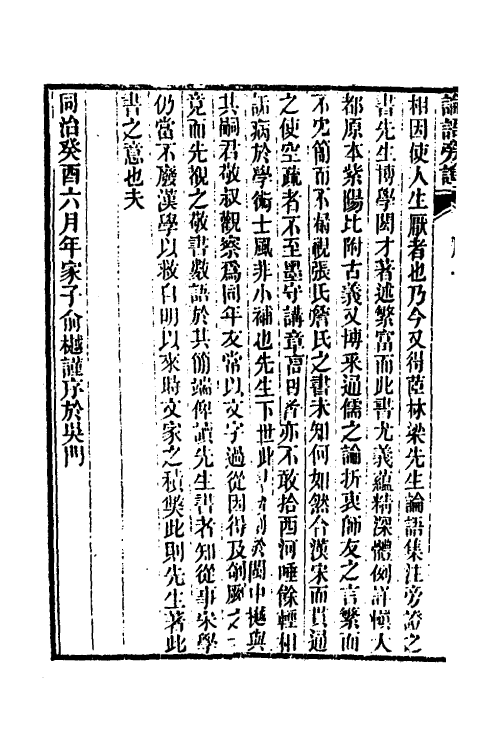 論語旁證
相因使人生厭者也乃今又得茝林梁先生論語集注旁證之
書先生博學閎才著述繁富而此書尤義蘊精深體例詳慎大
都原本紫陽比附古義又博采通儒之論折衷師友之言繁而
不冗簡而不漏視張氏詹氏之書未知何如然合漢宋而貫通
之使空疏者不至墨守講章高明者亦不敢拾西河唾餘輕相
詬病於學術士風非小補也先生下世此書始刻於閩中樾與
其嗣君敬叔觀察為同年友常以文字過從因得及剞劂之
竟而先覩之敬書數語於其簡端俾讀先生書者知從事宋學
仍當不廢漢學以救自明以來時文家之積獘此則先生著此
書之意也夫
同治癸酉六月年家子俞樾謹序於吳門